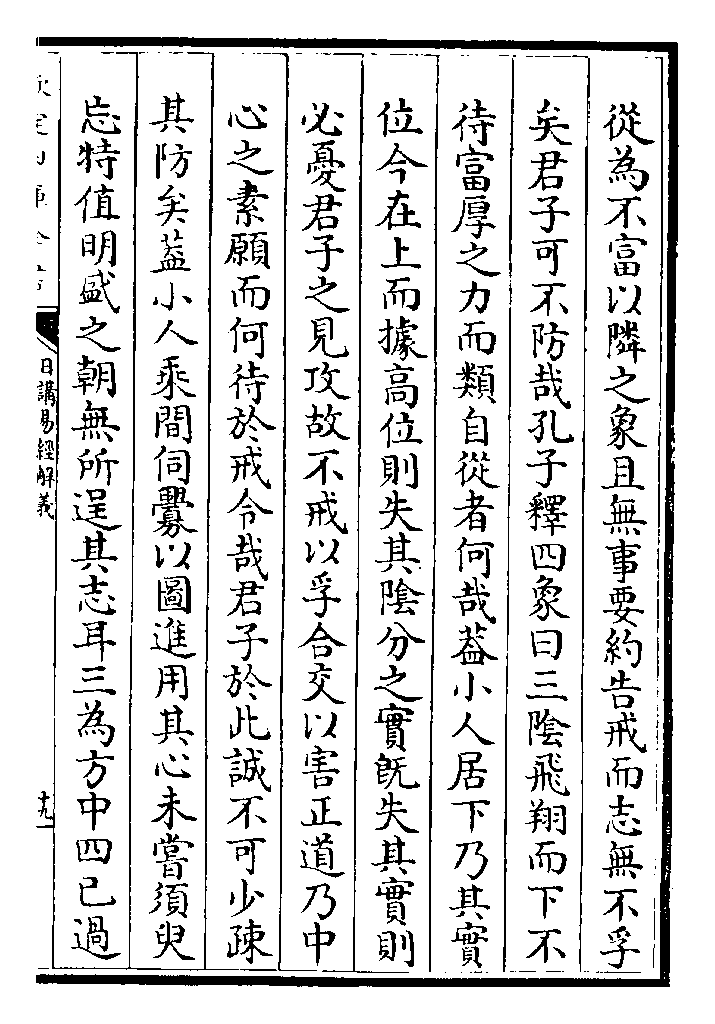 從為不富以隣之象且無事要約告戒而志無不孚
矣君子可不防哉孔子釋四象曰三陰飛翔而下不
待富厚之力而類自從者何哉葢小人居下乃其實
位今在上而據高位則失其陰分之實旣失其實則
必憂君子之見攻故不戒以孚合交以害正道乃中
心之素願而何待於戒令哉君子於此誠不可少踈
其防矣葢小人乘間伺釁以圖進用其心未嘗須臾
忘特值明盛之朝無所逞其志耳三為方中四已過
日講易經解義
十九